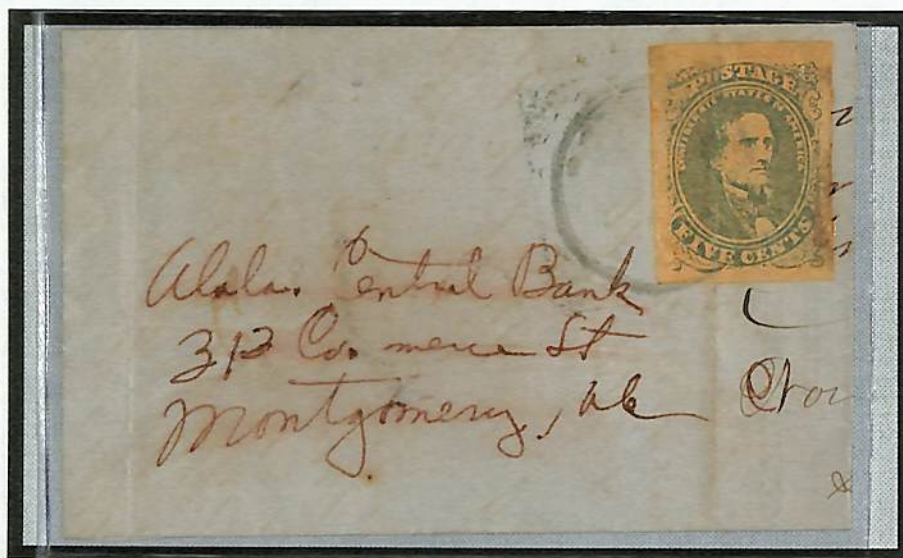 POSTAGE
CONFEDERATE STATES OF AMERICA
FIVE CENTS
Alaba. Central Bank
313 Commerce St
Montgomery, Ala